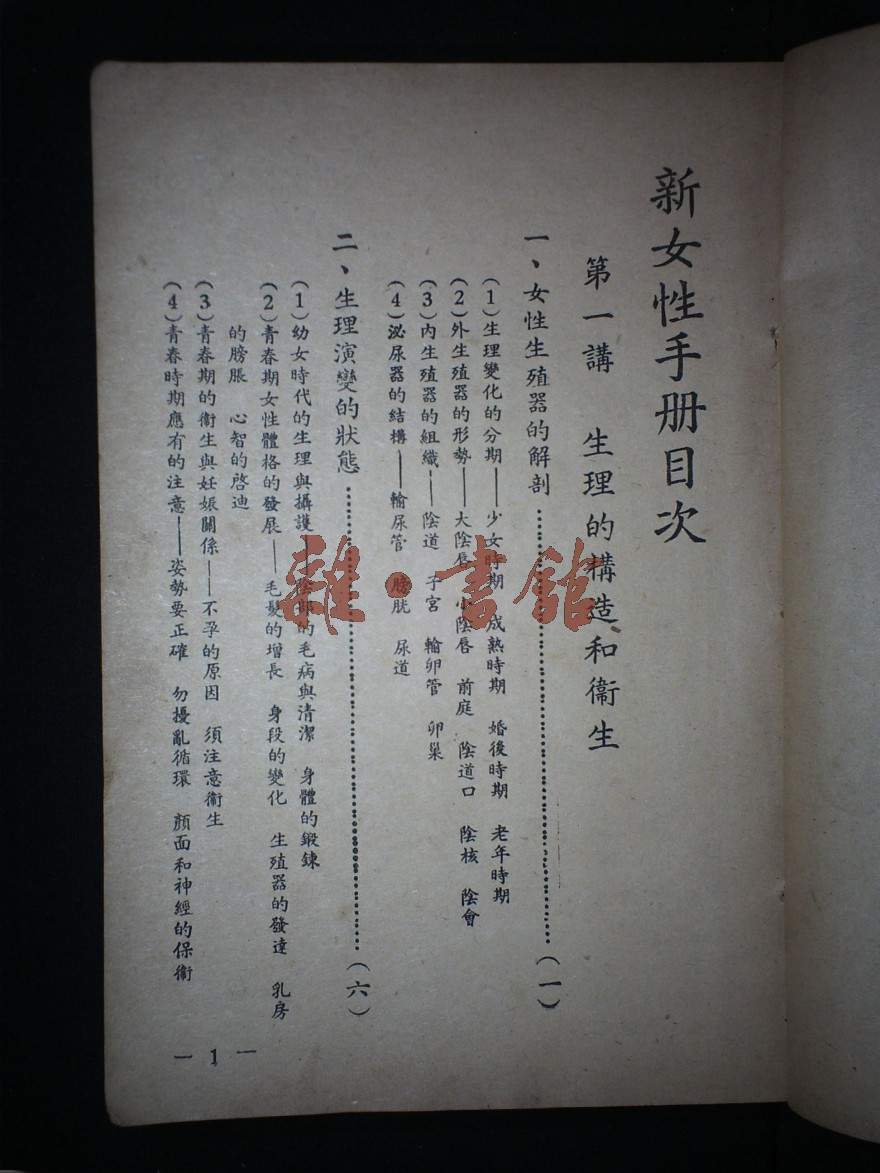 新女性手册目次
第一講　生理的構造和衞生
一、女性生殖器的解剖……………………（一）
（1）生理變化的分期——少女時期　成熟時期　婚後時期　老年時期
（2）外生殖器的形勢——大陰唇　小陰唇　前庭　陰道口　陰核　陰會
（3）內生殖器的組織——陰道　子宮　輸卵管　卵巢
（4）泌尿器的結構——輸尿管　膀胱　尿道
二、生理演變的狀態……………………（六）
（1）幼女時代的生理與攝護——陰部的毛病與清潔　身體的鍛鍊
（2）青春期女性體格的發展——毛髮的增長　身段的變化　生殖器的發達　乳房
的膀脹　心智的啓迪
（3）青春期的衞生與妊娠關係——不孕的原因　須注意衞生
（4）青春時期應有的注意——姿勢要正確　勿擾亂循環　顏面和神經的保衞
— 1 —
雜·書館